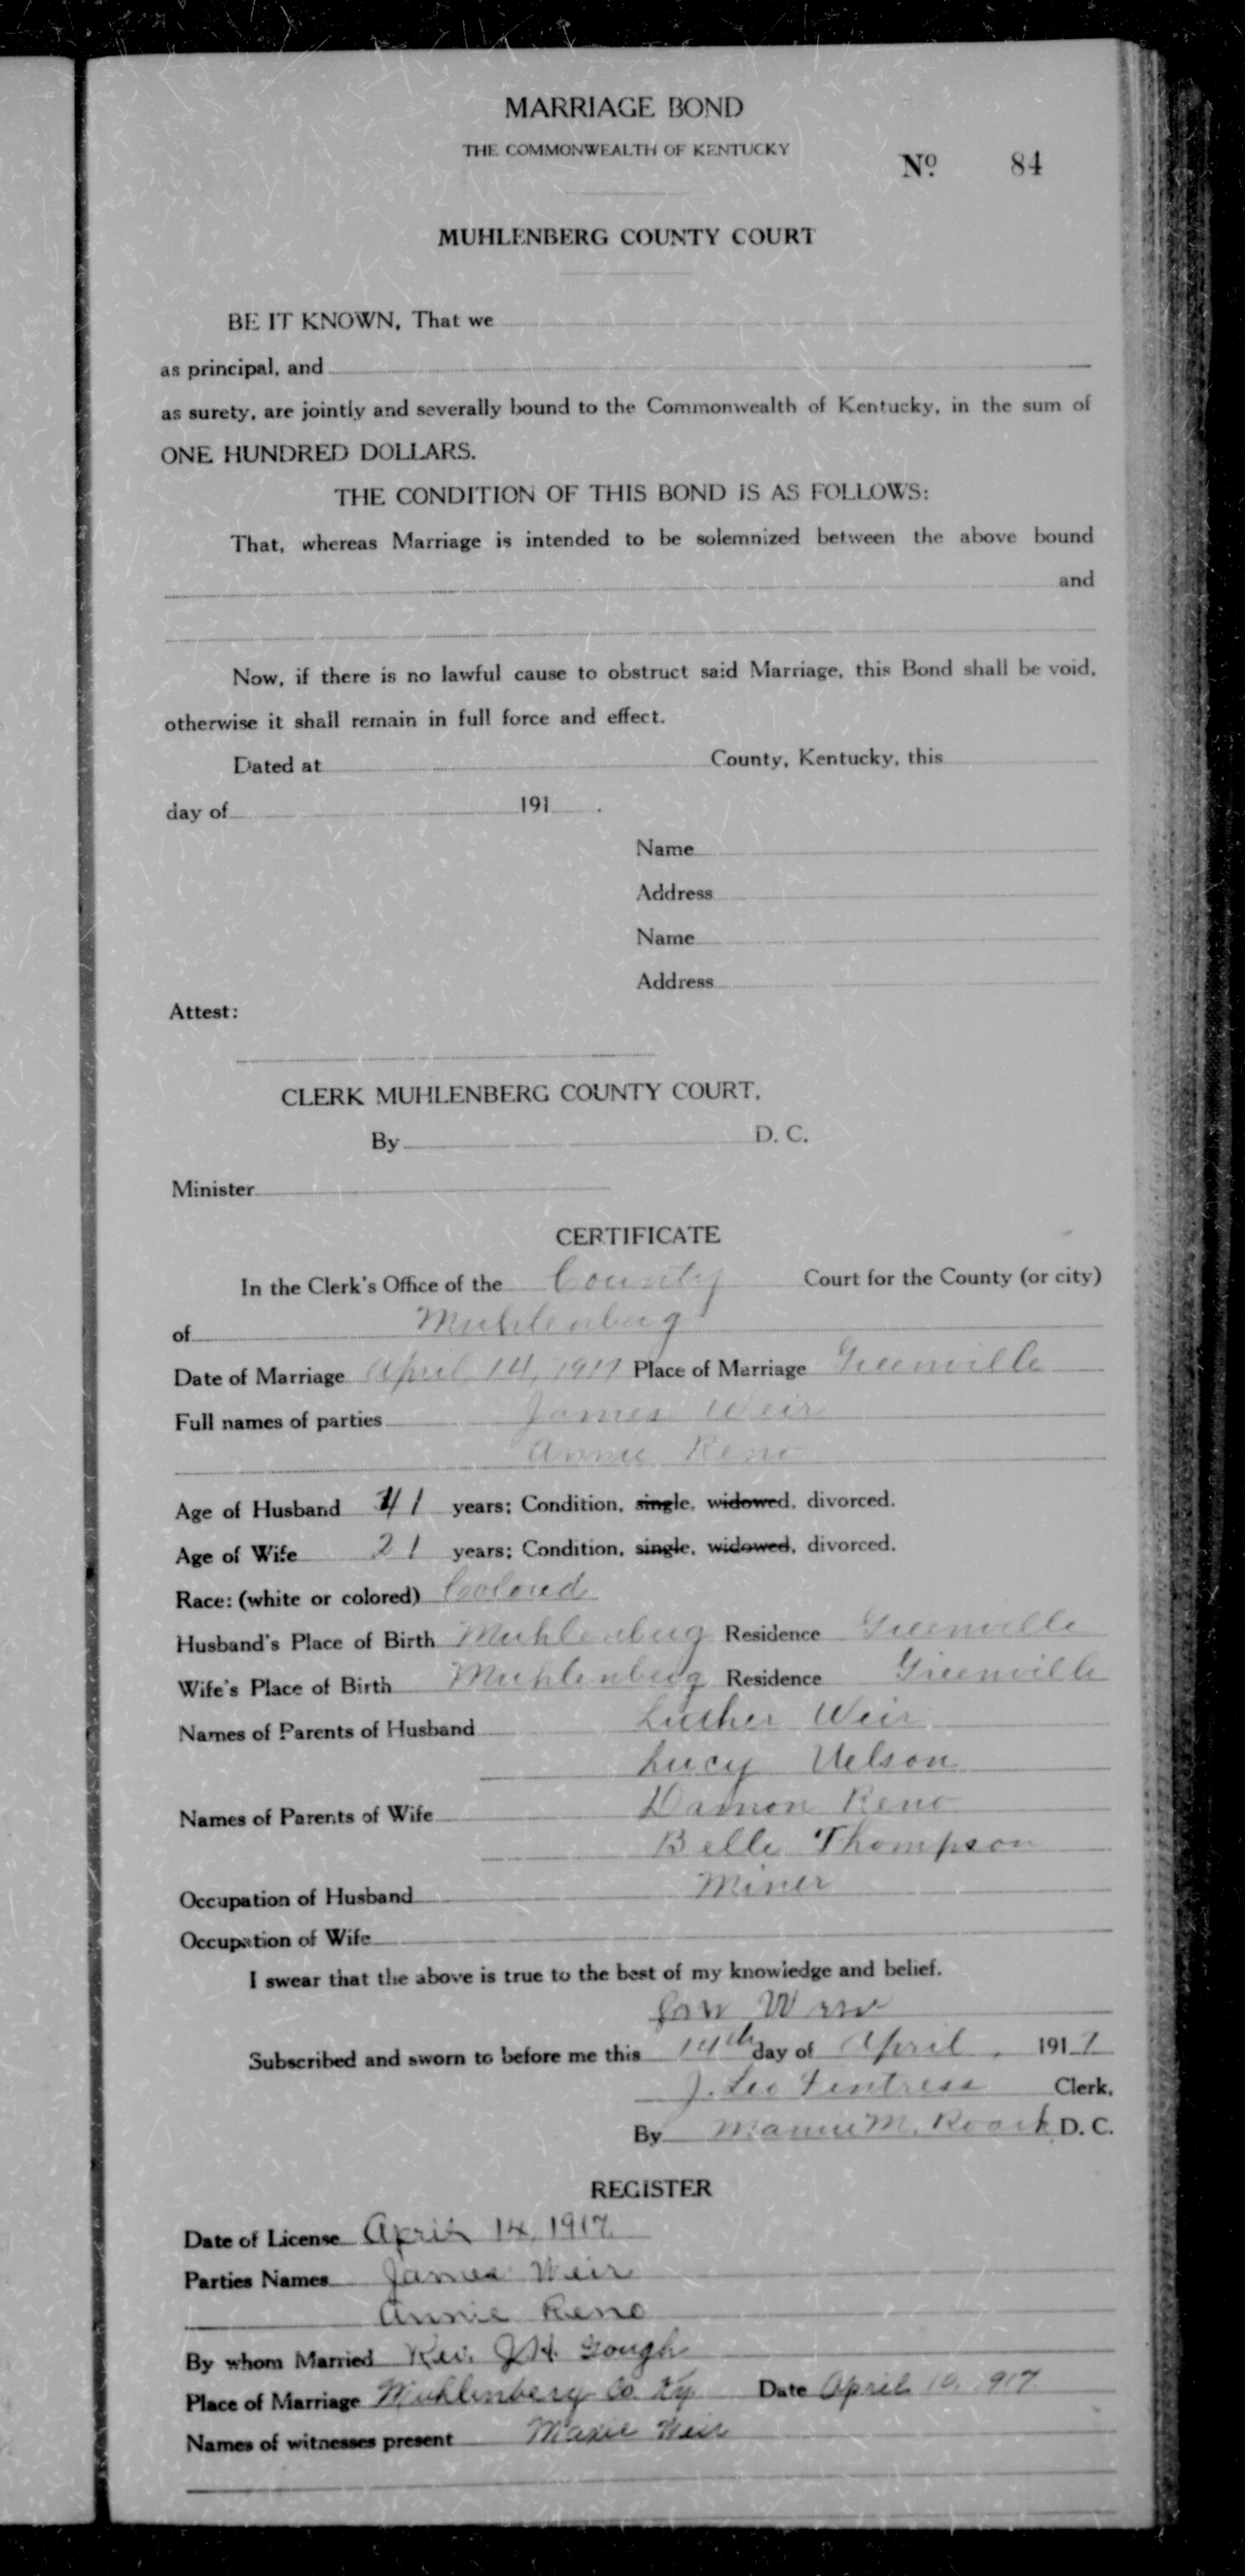 MARRIAGE BOND
THE COMMONWEALTH OF KENTUCKY
No. 84
MUHLENBERG COUNTY COURT
BE IT KNOWN, That we
as principal, and
as surety, are jointly and severally bound to the Commonwealth of Kentucky, in the sum of
ONE HUNDRED DOLLARS.
THE CONDITION OF THIS BOND IS AS FOLLOWS:
That, whereas Marriage is intended to be solemnized between the above bound
and
Now, if there is no lawful cause to obstruct said Marriage, this Bond shall be void,
otherwise it shall remain in full force and effect.
Dated at County, Kentucky, this
day of 191 .
Name
Address
Name
Address
Attest:
CLERK MUHLENBERG COUNTY COURT.
By D. C.
Minister
CERTIFICATE
In the Clerk's Office of the County Court for the County (or city)
of Muhlenberg
Date of Marriage April 14, 1917 Place of Marriage Greenville
Full names of parties James Weir
Annie Reno
Age of Husband 41 years; Condition, single, widowed, divorced.
Age of Wife 21 years; Condition, single, widowed, divorced.
Race: (white or colored) Colored
Husband's Place of Birth Muhlenberg Residence Greenville
Wife's Place of Birth Muhlenberg Residence Greenville
Names of Parents of Husband Luther Weir
Lucy Nelson
Names of Parents of Wife Damon Reno
Belle Thompson
Occupation of Husband Miner
Occupation of Wife
I swear that the above is true to the best of my knowledge and belief.
Subscribed and sworn to before me this 14th day of April, 1917
J. Leo Fentress Clerk,
By Mamie M. Roark D. C.
REGISTER
Date of License April 14, 1917
Parties Names James Weir
Annie Reno
By whom Married Rev. J.H. Gough
Place of Marriage Muhlenberg Co. Ky Date April 1917
Names of witnesses present Weir